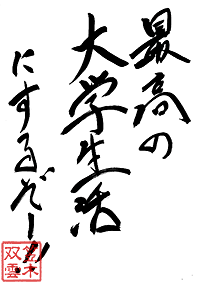 最高の
大学生活
にするぞー!!
双雲